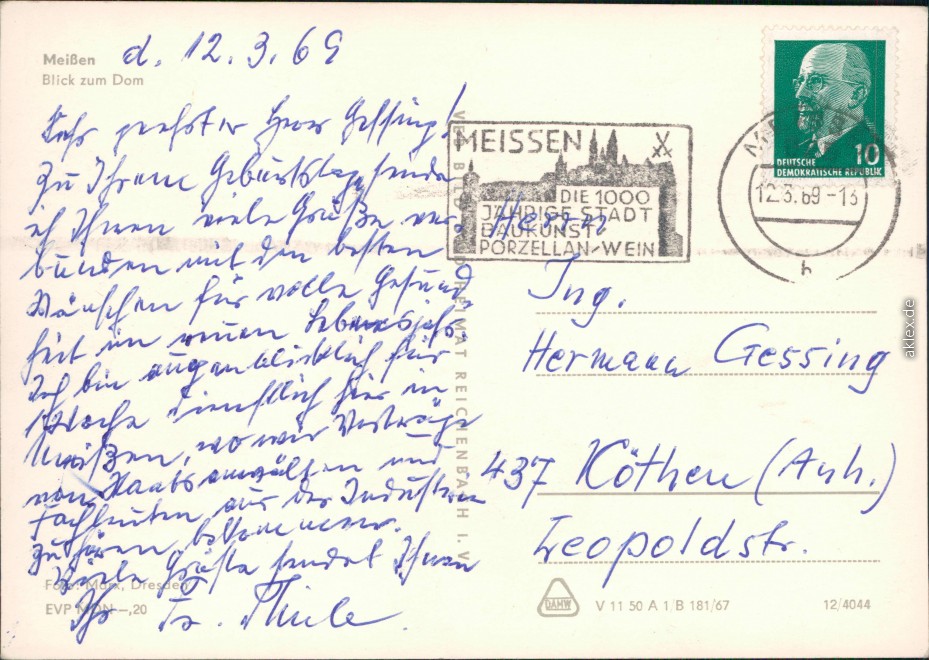 Meißen
Blick zum Dom
d. 12.3.69
Sehr geehrter Herr Gessing!
Zu Ihrem Geburtstag sende
ich Ihnen viele Grüße ver-
bunden mit den besten
Wünschen für volle Gesund-
heit im neuen Lebensjahr.
Ich bin augenblicklich für
1 Woche dienstlich hier in
Meißen, wo wir Vorträge
von Staatsanwälten und
Fachleuten aus der Industrie
zu hören bekommen.
Viele Grüße sendet Ihnen
Ihr Fr. Thiele.
Foto: Marx, Dresden
EVP MDN -,20
VEB BILD HEIMAT REICHENBACH I. V.
MEISSEN
DIE 1000
JÄHRIGE STADT
BAUKUNST
PORZELLAN-WEIN
12.3.69-13
h
10
DEUTSCHE
DEMOKRATISCHE REPUBLIK
Herrn
Ing.
Hermann Gessing
437 Köthen (Anh.)
Leopoldstr.
DAHW
V 11 50 A 1/B 181/67
12/4044
aklex.de